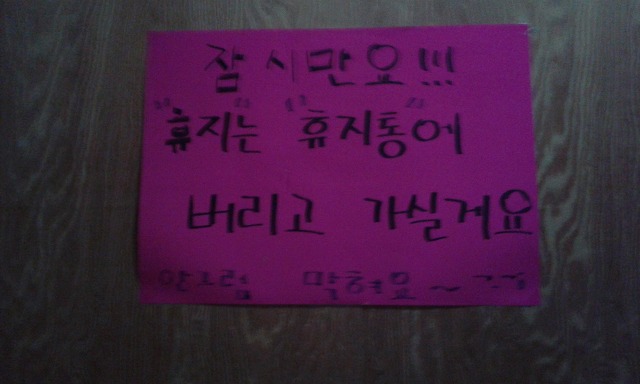 잠시만요!!!
"휴지"는 "휴지통"에
버리고 가실게요
안그럼 막혀요~